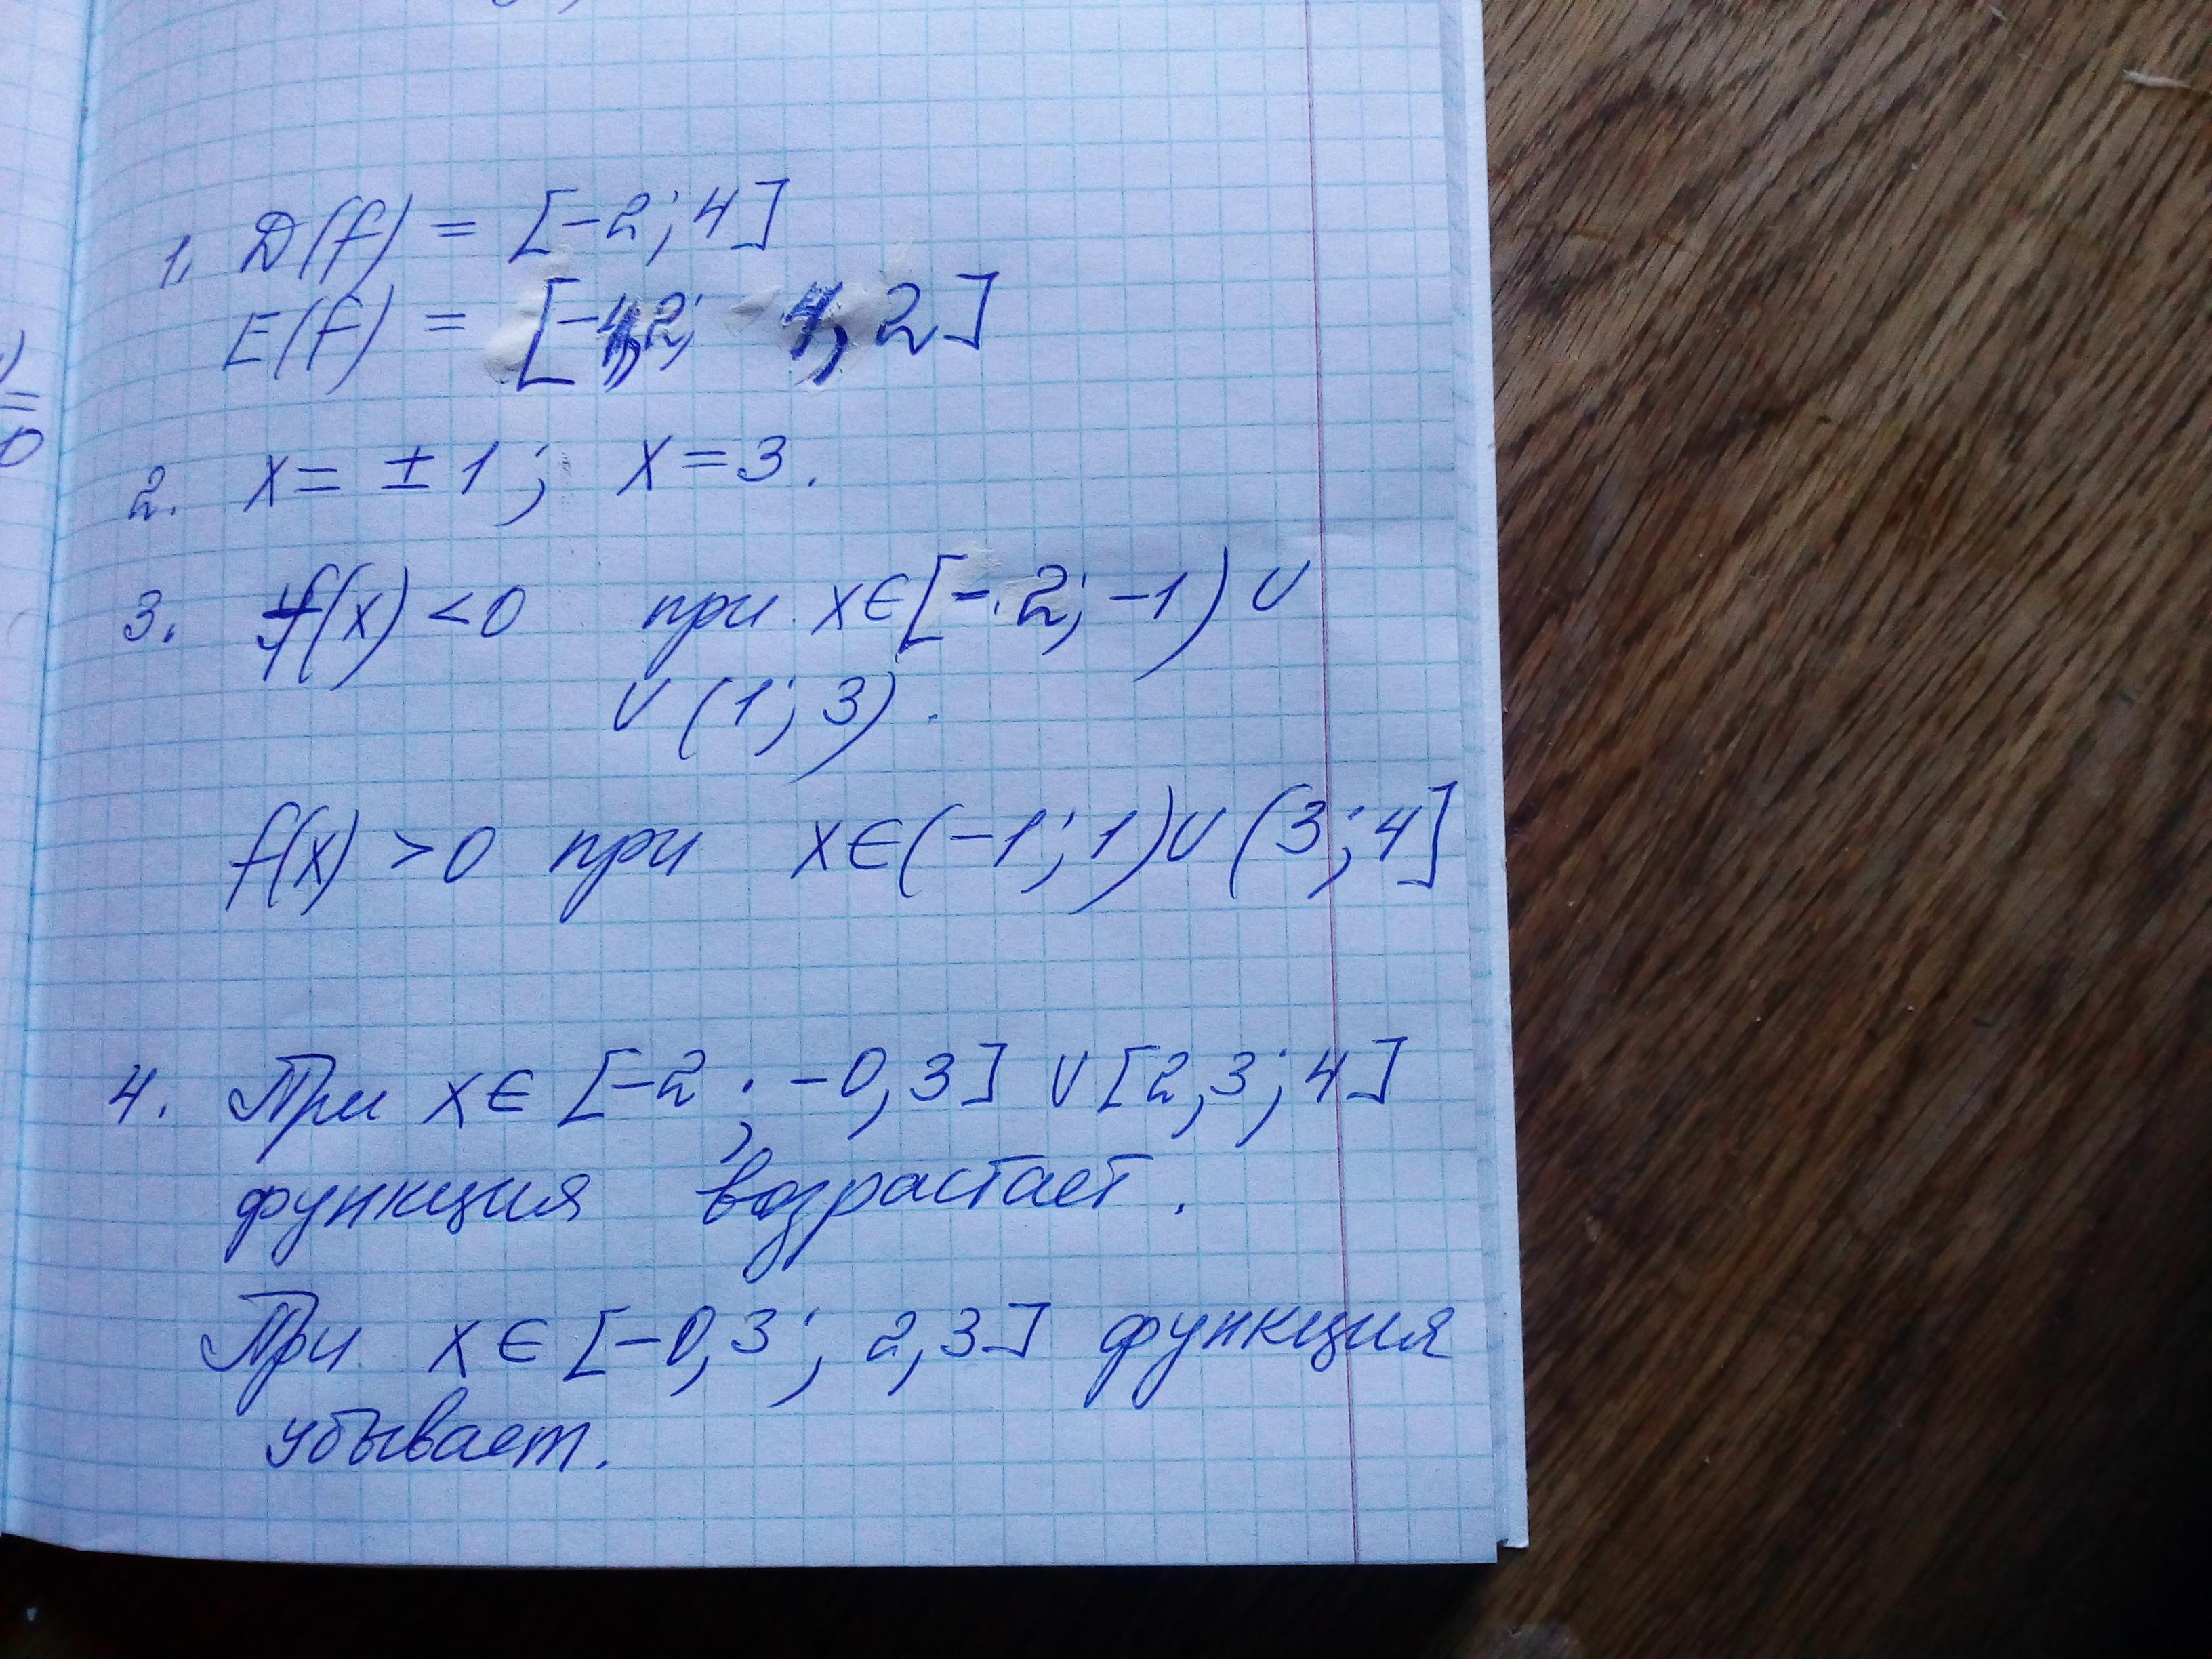 1. D(f) = [-2; 4]
E(f) = [-4,2; 4,2]
2. x = ±1; x = 3.
3. f(x) < 0 при x ∈ [-2; -1) ∪
∪ (1; 3).
f(x) > 0 при x ∈ (-1; 1) ∪ (3; 4]
4. При x ∈ [-2; -0,3] ∪ [2,3; 4]
функция возрастает.
При x ∈ [-0,3; 2,3] функция
убывает.